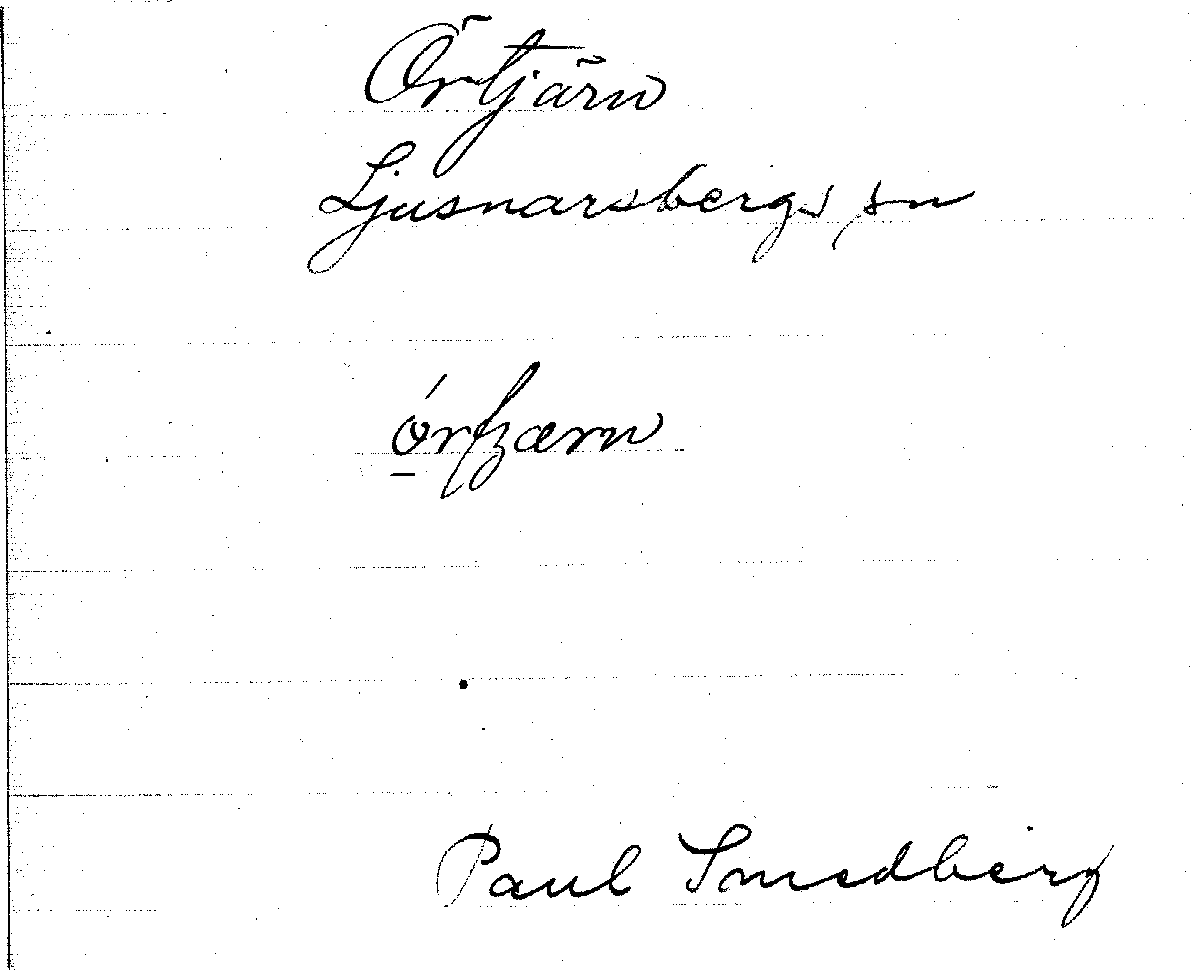 Örtjärn
Ljusnarsbergs sn
Paul Smedberg